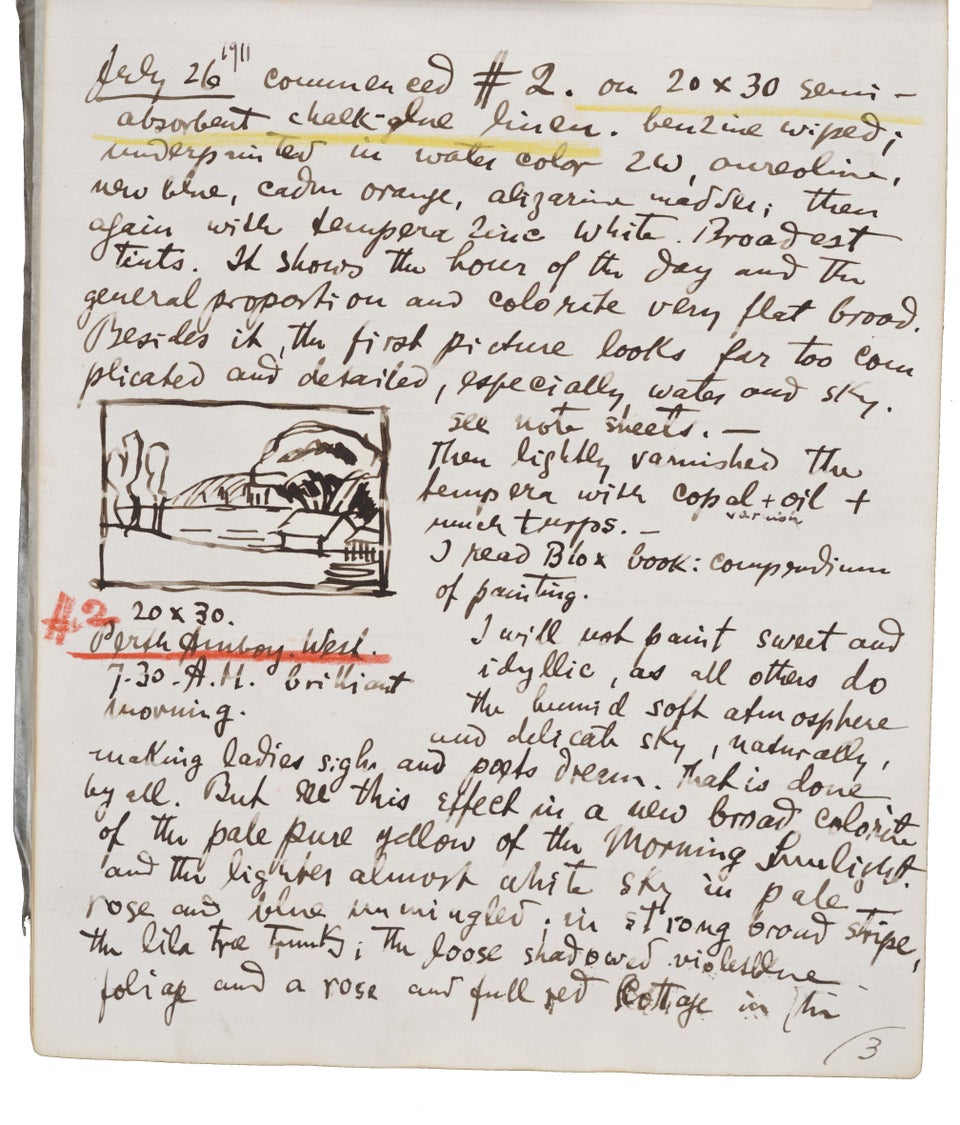 July 26 1911 commenced #2. on 20 x 30 semi-
absorbent chalk-glue linen. benzine wiped;
underpainted in water color ZW, aureoline,
new blue, cadm orange, alizarine madder; then
again with tempera Zinc White. Broadest
tints. It shows the hour of the day and the
general proportion and colorite very flat broad.
Besides it, the first picture looks far too com
plicated and detailed, especially water and sky.
see note sheets. —
Then lightly varnished the
tempera with copal + oil +
varnish
much turps. —
I read Blox book: compendium
of painting.
#2 20 x 30.
Perth Amboy. West.
7-30. A.M. brilliant
morning.
I will not paint sweet and
idyllic, as all others do
the humid soft atmosphere
and delicate sky, naturally,
making ladies sigh and poets dream. That is done
by all. But see this effect in a new broad colorite
of the pale pure yellow of the Morning Sunlight.
and the lighter almost white sky in pale
rose and blue unmingled; in strong broad stripe,
the lila tree trunks; the loose shadowed violetblue
foliage and a rose and full red Cottage in this
3